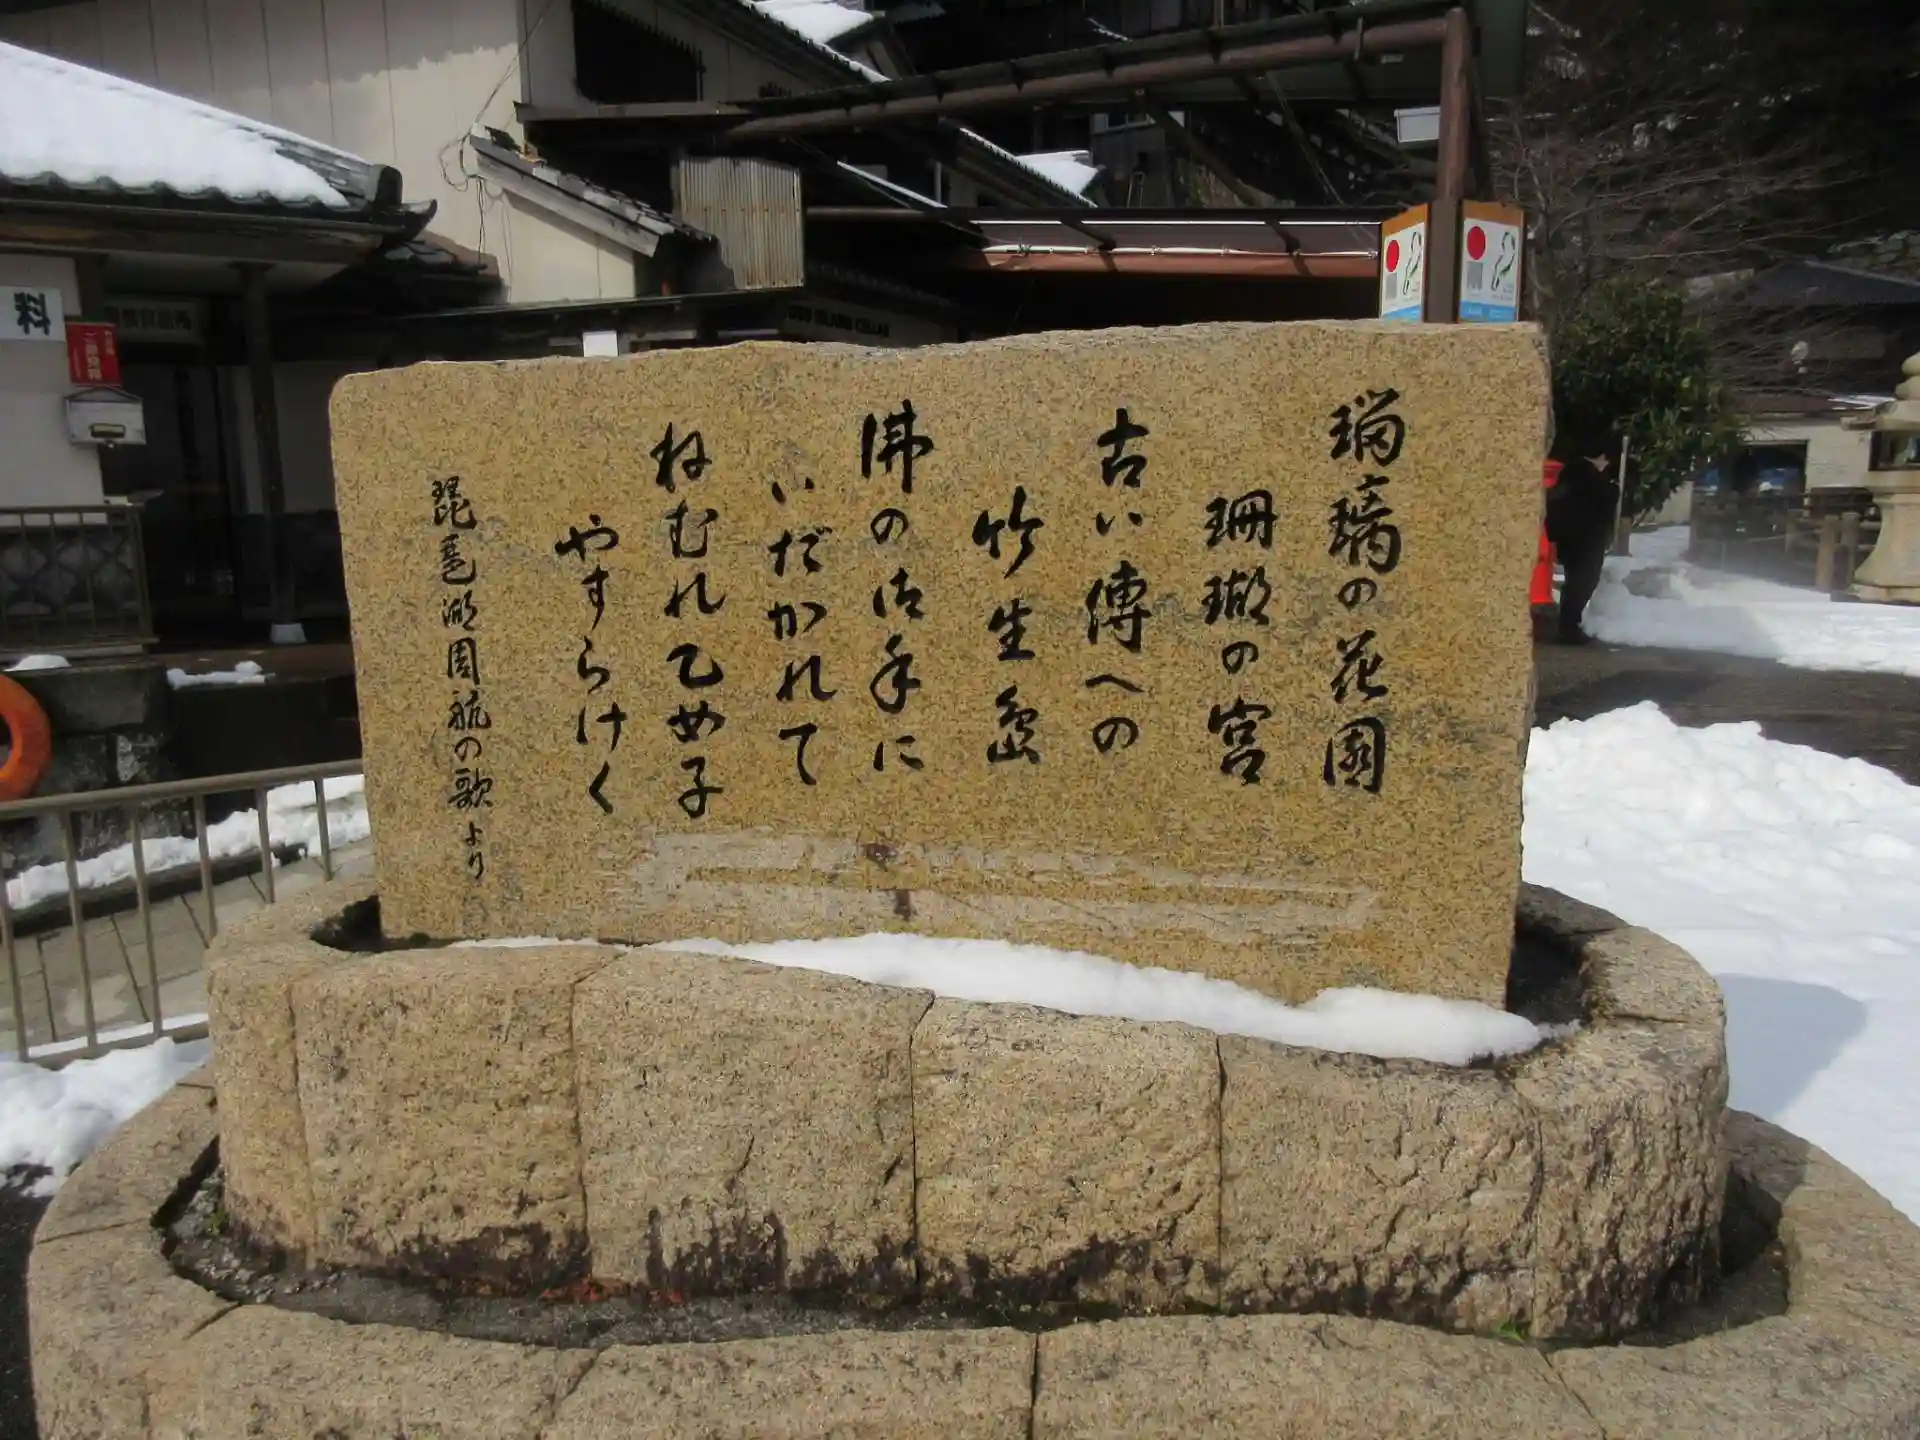 瑠璃の花園
珊瑚の宮
古い傳への
竹生島
佛の御手に
いだかれて
ねむれ乙め子
やすらけく
琵琶湖周航の歌より
料